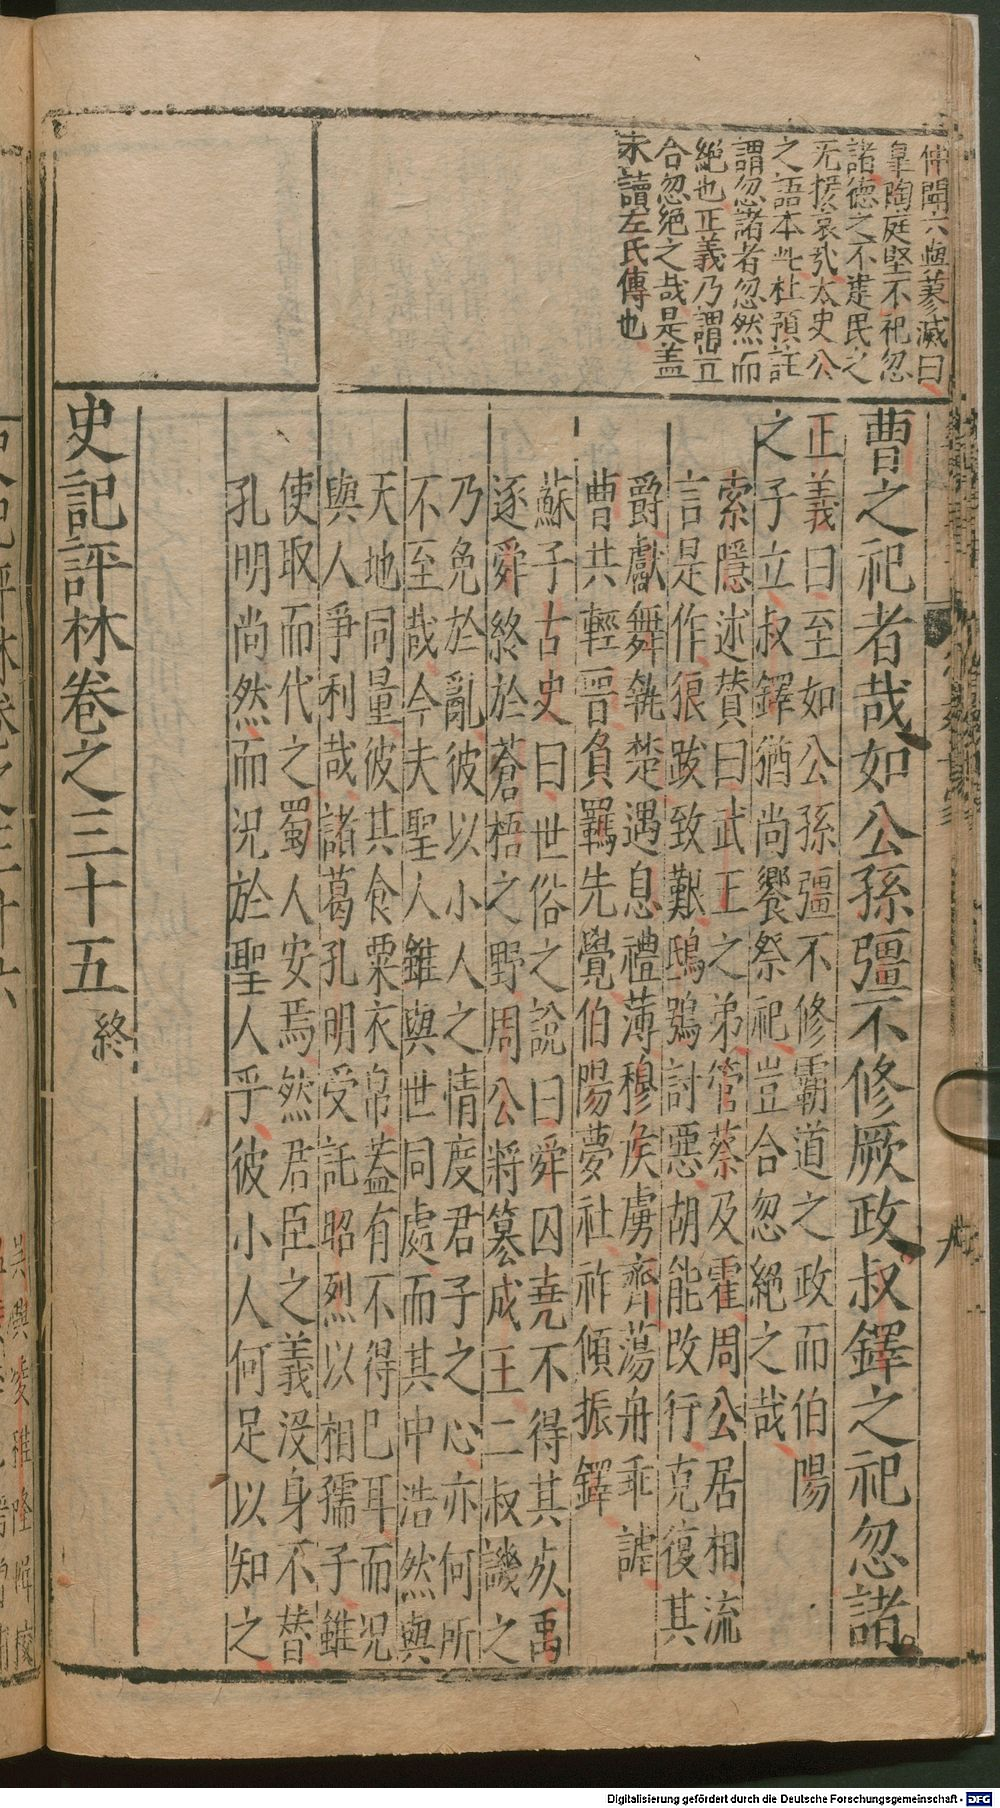 仲聞六與蓼滅曰
臯陶庭堅不祀忽
諸德之不建民之
无援哀哉太史公
之語本此杜預註
謂忽諸者忽然而
絶也正義乃謂豈
合忽絶之哉是盖
未讀左氏傳也
曹之祀者哉如公孫彊不修厥政叔鐸之祀忽諸
正義曰至如公孫彊不修霸道之政而伯陽
之子立叔鐸猶尚饗祭祀豈合忽絶之哉
索隱述贊曰武王之弟管蔡及霍周公居相流
言是作狼跋致艱鴟鴞討惡胡能改行克復其
爵獻舞執楚遇息禮薄穆侯虜齊蕩舟乖謔
曹共輕晋負羈先覺伯陽夢社祚傾振鐸
蘇子古史曰世俗之說曰舜囚堯不得其死禹
逐舜終於蒼梧之野周公將簒成王二叔譏之
乃免於亂彼以小人之情度君子之心亦何所
不至哉今夫聖人雖與世同處而其中浩然與
天地同量彼其食粟衣帛蓋有不得已耳而况
與人爭利哉諸葛孔明受託昭烈以相孺子雖
使取而代之蜀人安焉然君臣之義没身不替
孔明尚然而况於聖人乎彼小人何足以知之
史記評林卷之三十五 終
Digitalisierung gefördert durch die Deutsche Forschungsgemeinschaft - DFG